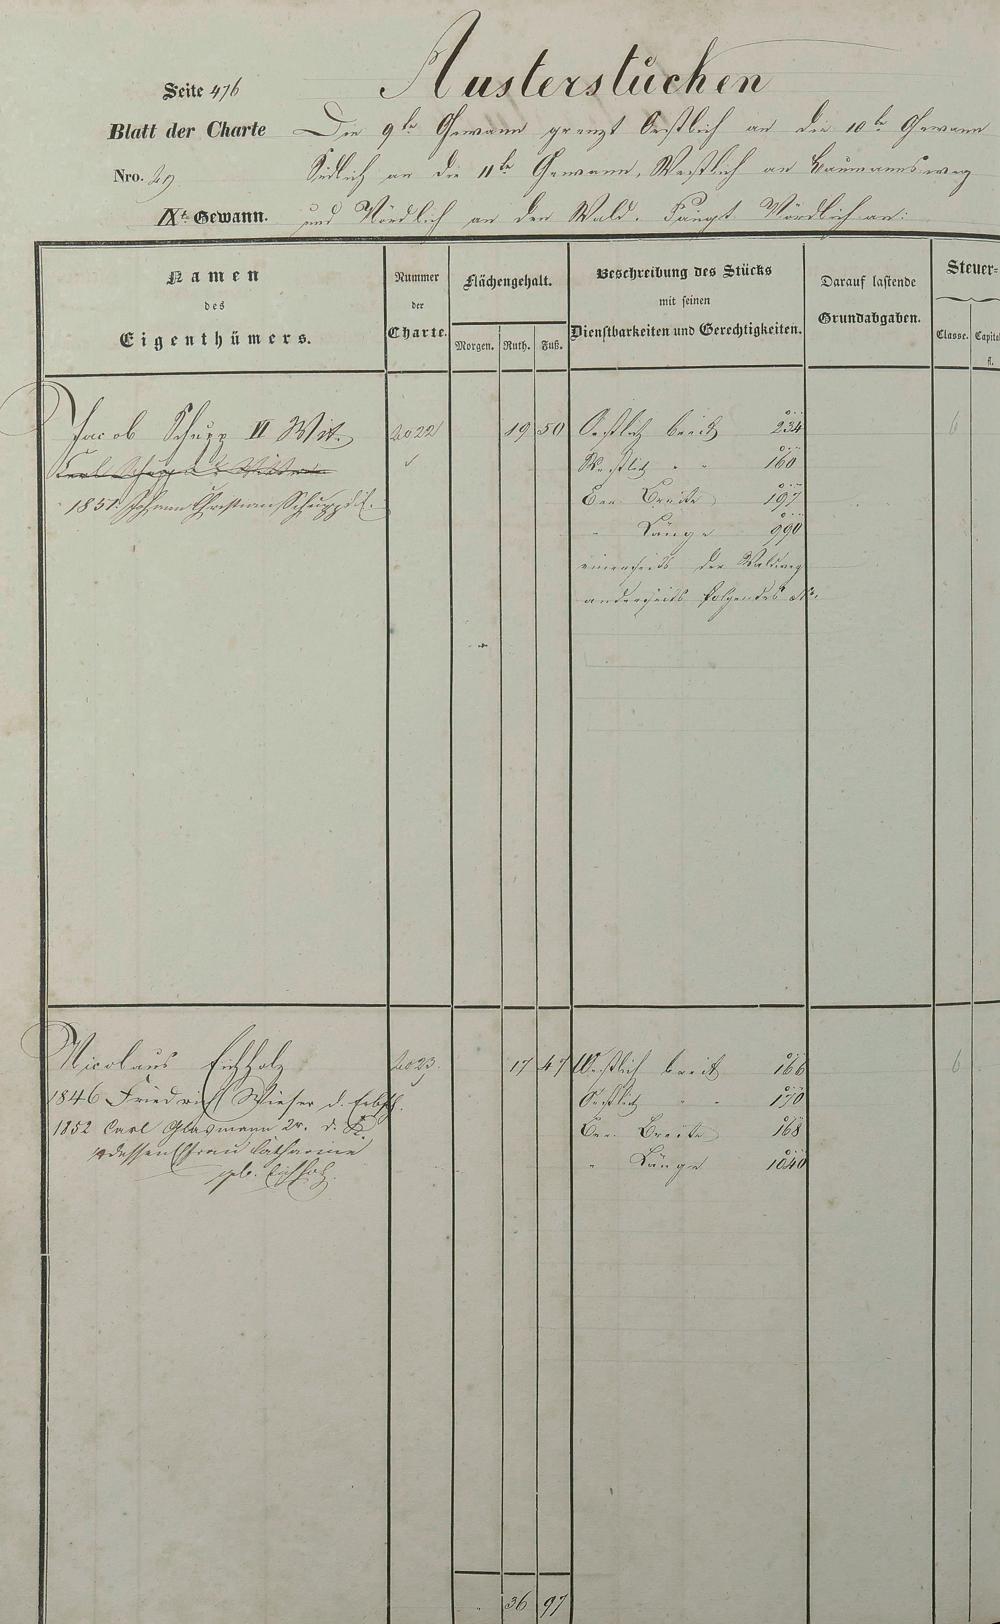 Austerstücken
Seite 476
Blatt der Charte
Nro.
IXte Gewann.
Die 9te Gewann grenzt Oestlich an die 10te Gewann
Südlich an die 11te Gewann, Westlich an Baumannsweg
und Nördlich an den Wald. Fängt Nördlich an:
Namen
des
Eigenthümers.
Nummer
der
Charte.
Flächengehalt.
Morgen. Ruth. Fuß.
Beschreibung des Stücks
mit seinen
Dienstbarkeiten und Gerechtigkeiten.
Darauf lastende
Grundabgaben.
Steuer-
Classe. Capital
fl.
Jacob Schupp II Wit. 2022 19 50 Oestlich breit 234 6
Westlich " " 160
1851. Johann Christian Schupp
Ber. Breite 197
" Länge 990
einerseits der Waldweg
anderseits folgendes No.
Nicolaus Eichholz 2023. 17 47 Westlich breit 166 6
1846 Friedrich Wieser d. Erbsch. Oestlich " " 170
1852 Carl Glasmann 2r. d. Ber. Breite 168
dessen Frau Catharine " Länge 1040
geb. Eichholz.
" 36 97